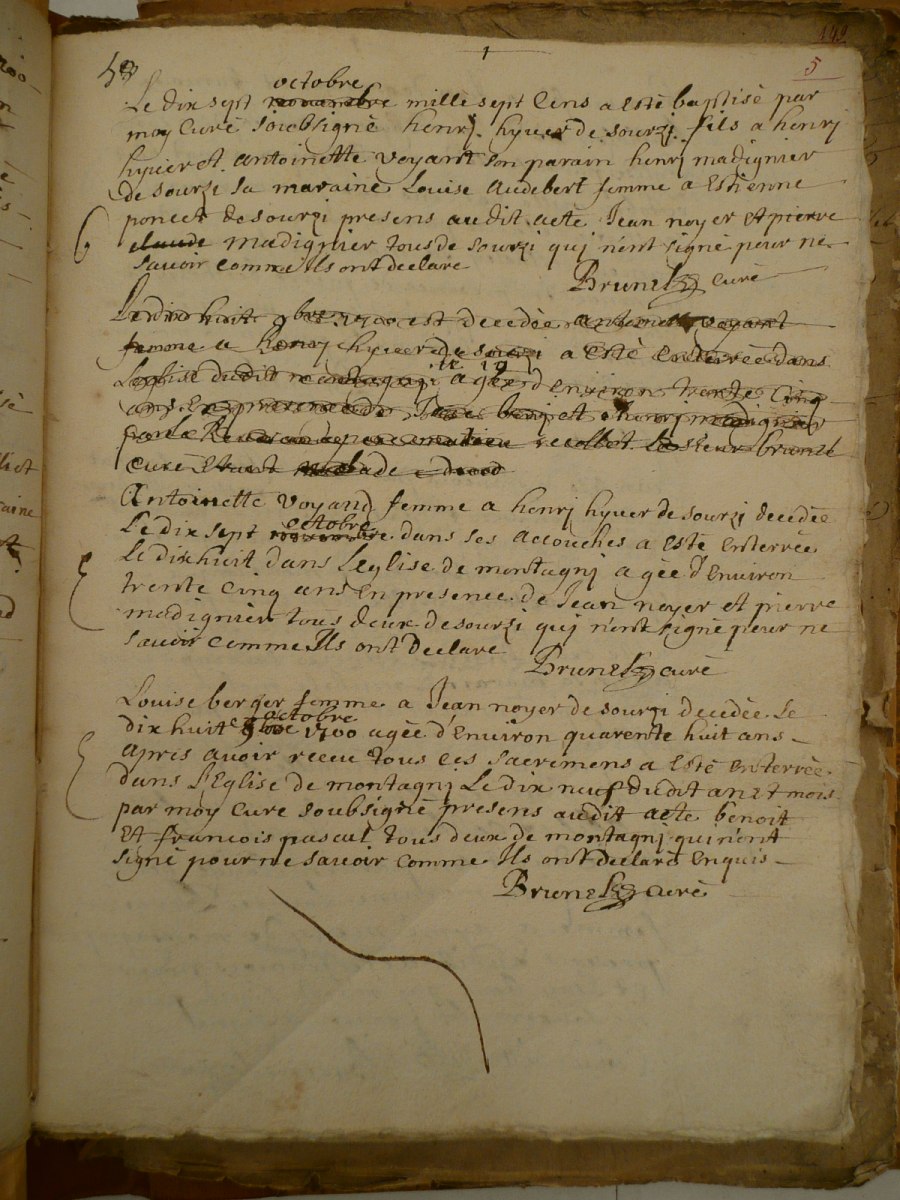 5
Le dix sept novembre octobre mille sept cens a esté baptisé par
moy curé soubsigné henrj hyuer de sourzj fils a henrj
hyuer et antoinette voyant son parain henrj madignier
de sourzi sa maraine Louise audebert femme a Estienne
poncet de sourzi presens audit acte Jean noyer et pierre
claude madignier tous de sourzi quj n'ont signé pour ne
savoir comme Ils ont declaré
Brunel curé
Le dix huit 9bre 1700 est decedée antoinette voyant
femme a henrj hyuer de sourzi a esté enterrée dans
Leglise dudit montagnj agée d'environ trente cinq
ans en presence de
recollet Le sieur brunel
curé Etant malade
Antoinette voyand femme a henrj hyuer de sourzj decedée
Le dix sept novembre octobre dans ses accouches a esté enterrée
Le dixhuit dans Leglise de montagnj agée d'Environ
trente cinq ans En presence de Jean noyer et pierre
madignier tous deux de sourzi quj n'ont signé pour ne
savoir comme Ils ont declaré
Brunel curé
Louise berger femme a Jean noyer de sourzi decedée Le
dix huite 9bre octobre 1700 agée d'Environ quarente huit ans
apres avoir receu tous les sacremens a esté enterrée
dans l'Eglise de montagnj Le dix neuf dudit an et mois
par moy curé soubsigné presens audit acte benoit
Et francois pascal tous deux de montagnj qui n'ont
signé pour ne savoir comme Ils ont declaré enquis
Brunel curé